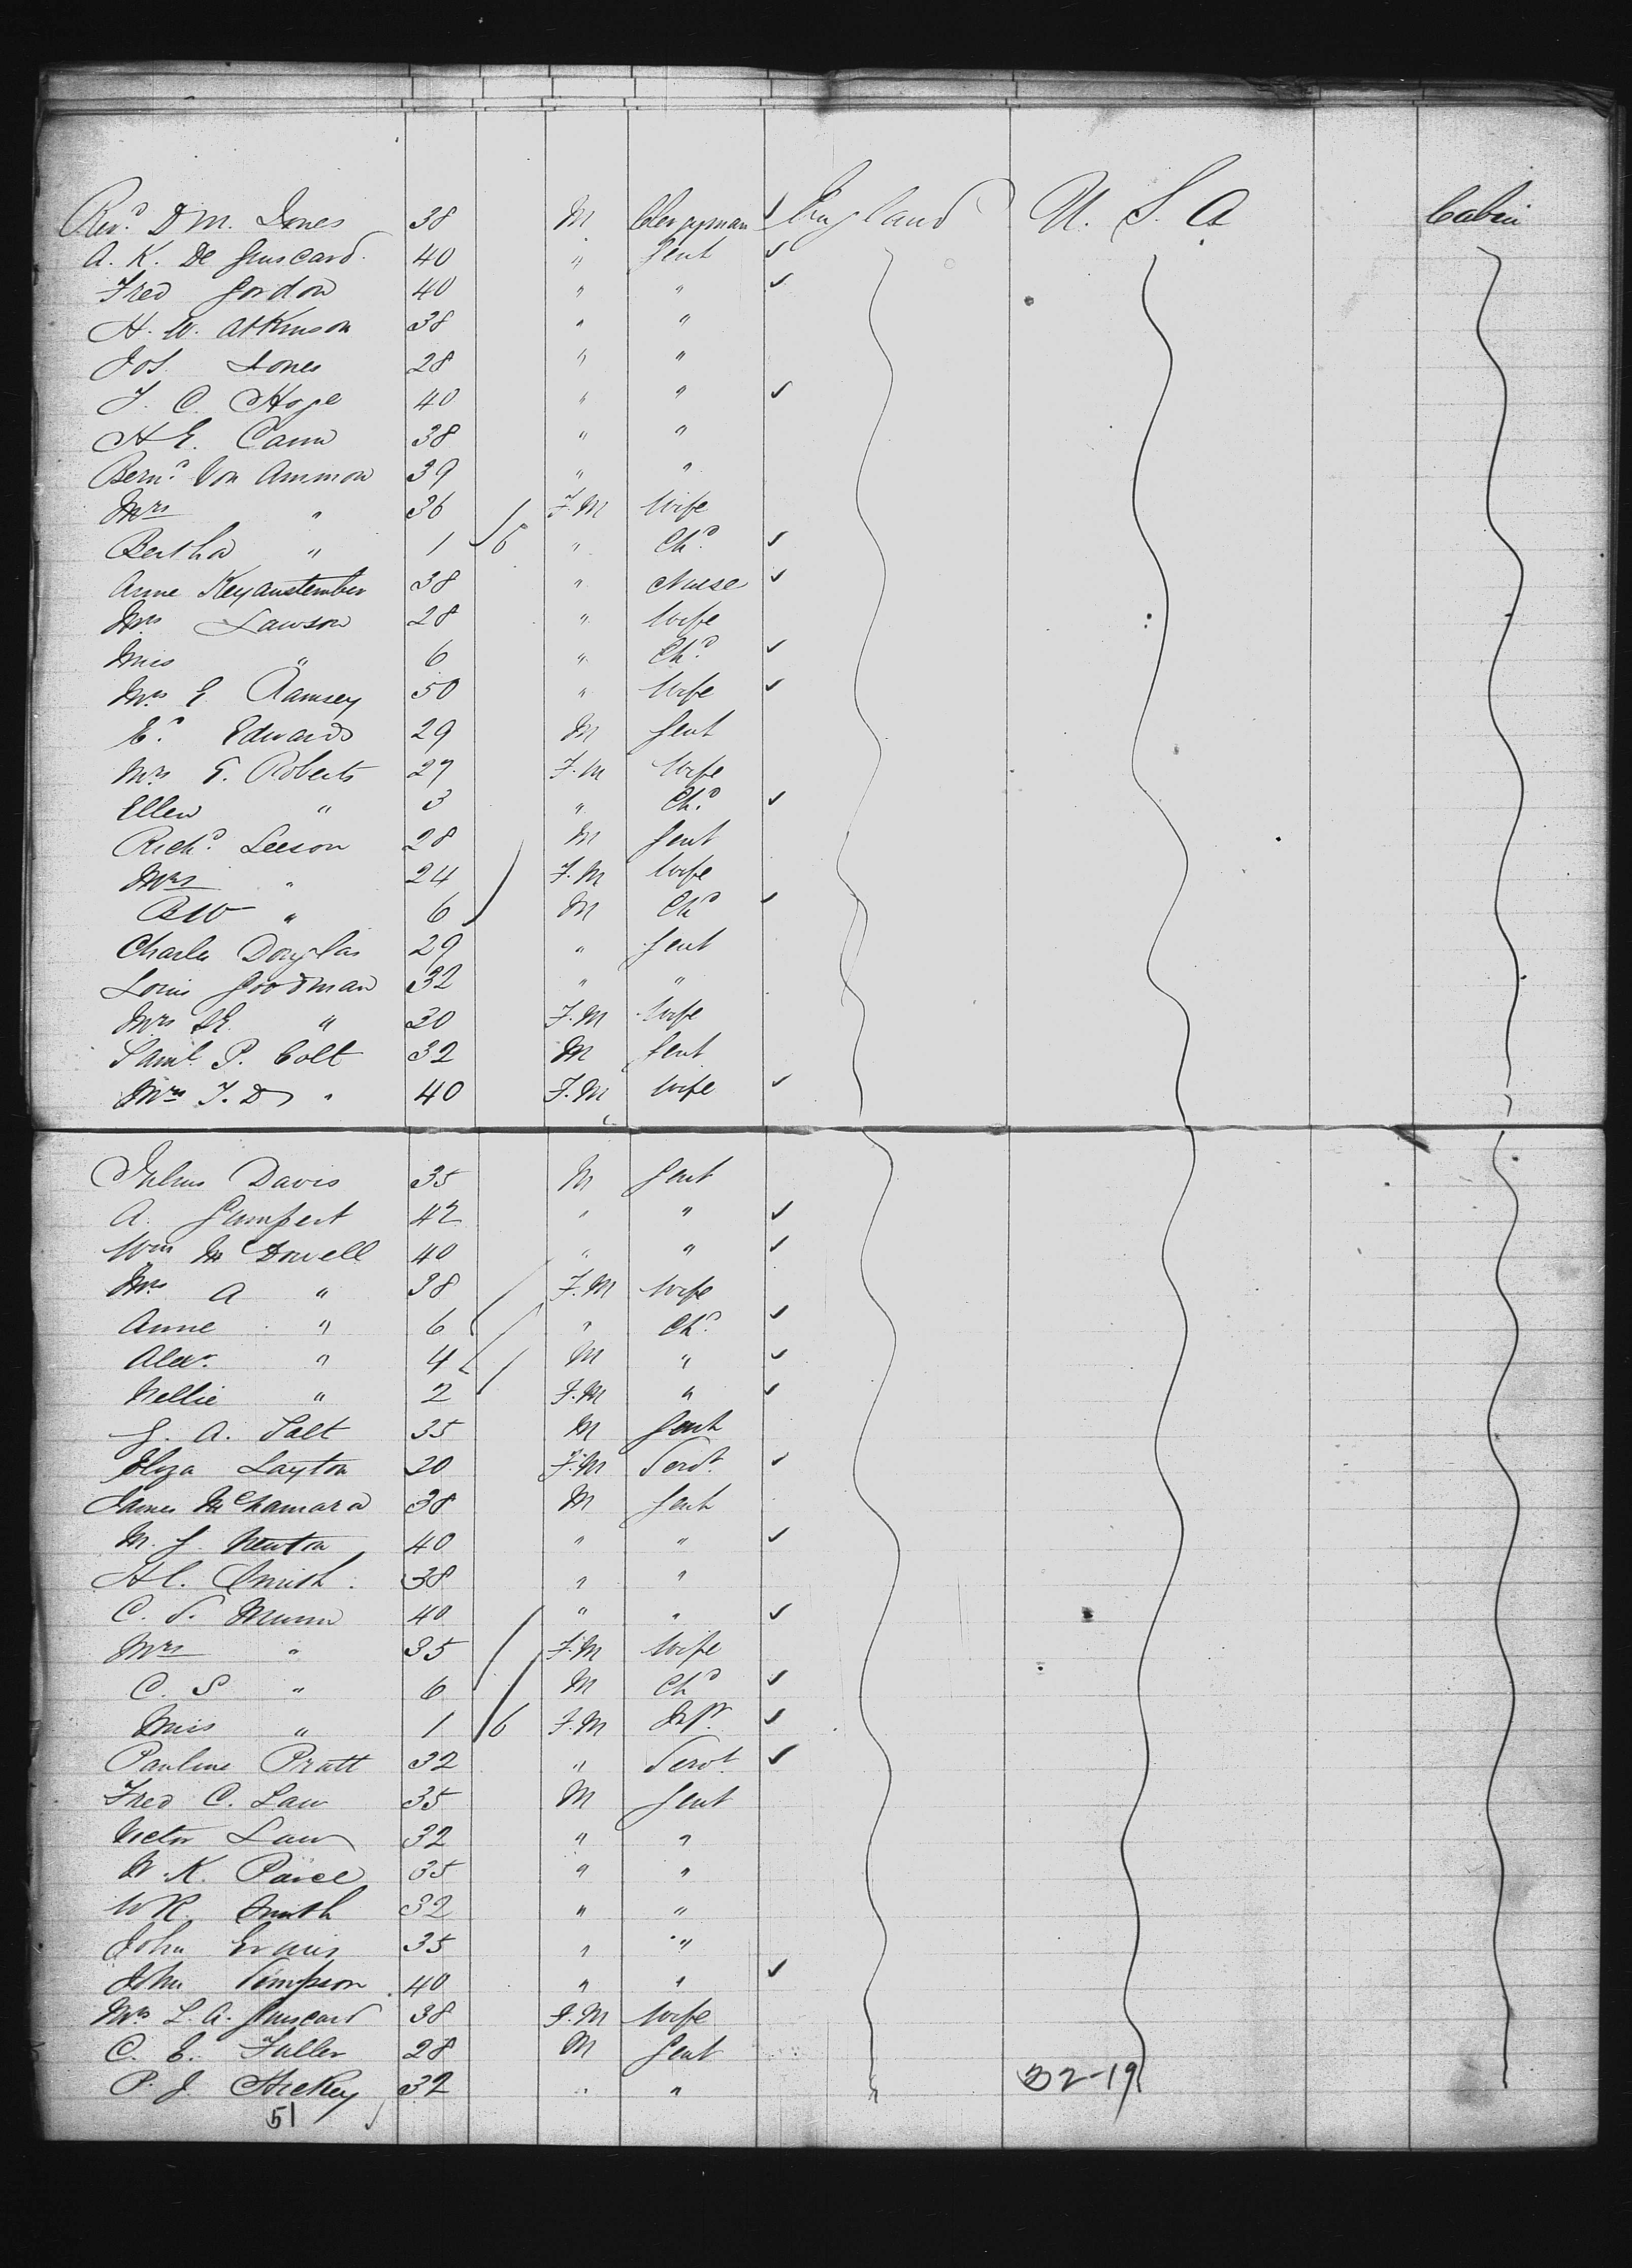 Revd. D M. Jones 38 M Clergyman ✓ England U. S. A Cabin
A. K. De Guiscard. 40 " Gent ✓
Fred Gordon 40 " " ✓
H. W. Atkinson 38 " "
Jos. Jones 28 " "
J. C. Hope 40 " " ✓
H E. Cann 38 " "
Bernd. Von Ammon 39 " "
Mrs " 36 F. M Wife
Bertha " 1 6 " Chd. ✓
Anne 38 " Nurse ✓
Mrs Lawson 28 " Wife
Miss " 6 " Chd. ✓
Mrs E Ramsey 50 " Wife ✓
Ed. Edwards 29 M Gent
Mrs E. Roberts 27 F. M Wife
Ellen " 3 " Chd. ✓
Richd. Leeson 28 M Gent
Mrs " 24 F. M Wife
R W " 6 M Chd ✓
Charles Douglas 29 " Gent
Louis Goodman 32 " "
Mrs " 30 F. M Wife
Saml. P. Colt 32 M Gent
Mrs T. D " 40 F. M Wife ✓
Julius Davis 35 M Gent
A. Gumpert 42 " " ✓
Wm McDowell 40 " " ✓
Mrs A " 38 F. M Wife
Anne " 6 " Chd. ✓
Alexr. " 4 M " ✓
Nellie " 2 F. M " ✓
G. A. Salt 35 M Gent
Eliza Layton 20 F. M Servt. ✓
James McNamara 38 M Gent
M. J. Newton 40 " " ✓
H C. Smith. 38 " "
C. S. Munn 40 " " ✓
Mrs " 35 F. M Wife
C. S " 6 M Chd ✓
Miss " 1 6 F. M Inft. ✓
Pauline Pratt 32 " Servt. ✓
Fred C. Law 35 M Gent
Victor Law 32 " "
K. 35 " "
W R. Smith 32 " "
John Evans 35 " "
John Simpson 40 " " ✓
Mrs L. A. Guiscard 38 F. M Wife
C. E. Fuller 28 M Gent
P. J. Hickey 32 " " 32-19
51